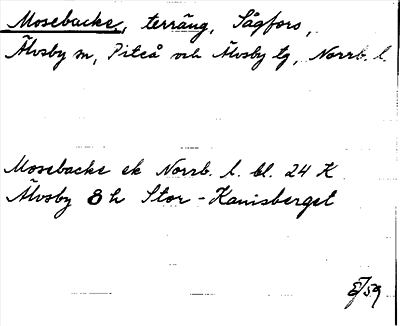 Mosebacke, terräng, Sågfors,
Älvsby sn, Piteå och Älvsby tg, Norrb. l.
Mosebacke ek Norrb. l. bl. 24 K
Älvsby 8 h Stor-Kanisberget
E/59